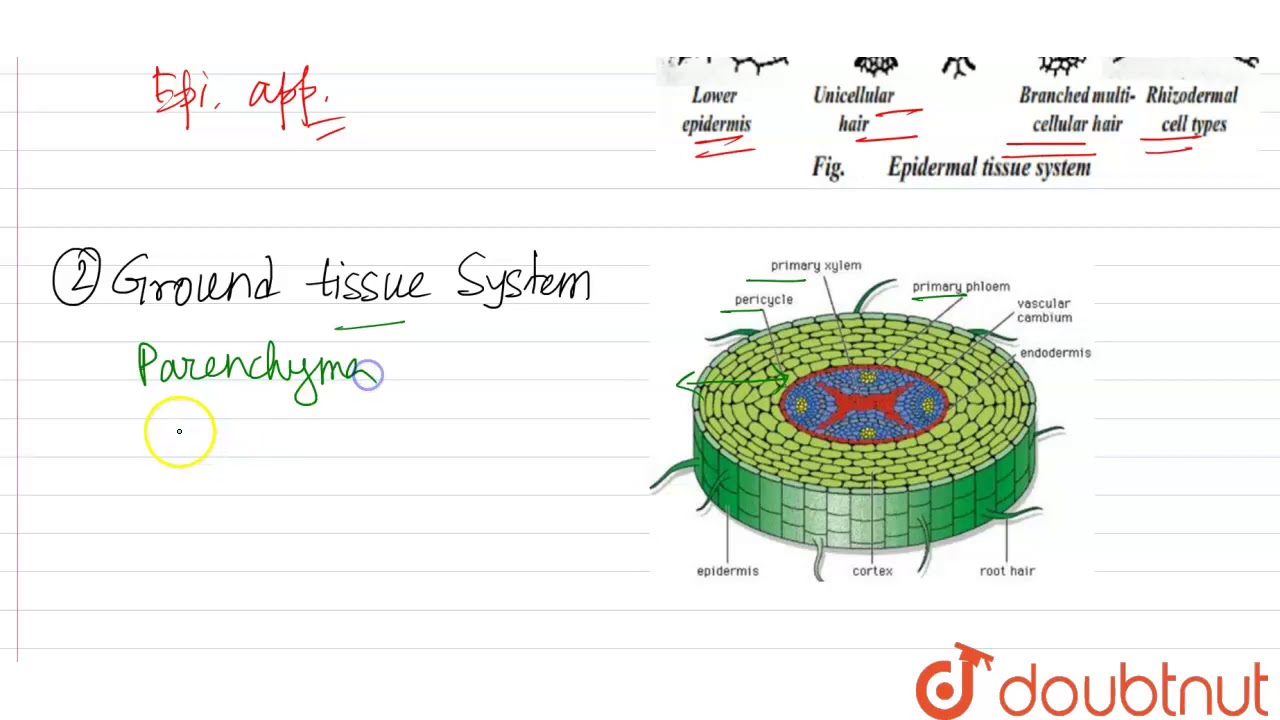 Epi. app.
Lower epidermis
Unicellular hair
Branched multi-cellular hair
Rhizodermal cell types
Fig. Epidermal tissue system
② Ground tissue System
Parenchyma
primary xylem
pericycle
primary phloem
vascular cambium
endodermis
epidermis
cortex
root hair
doubtnut